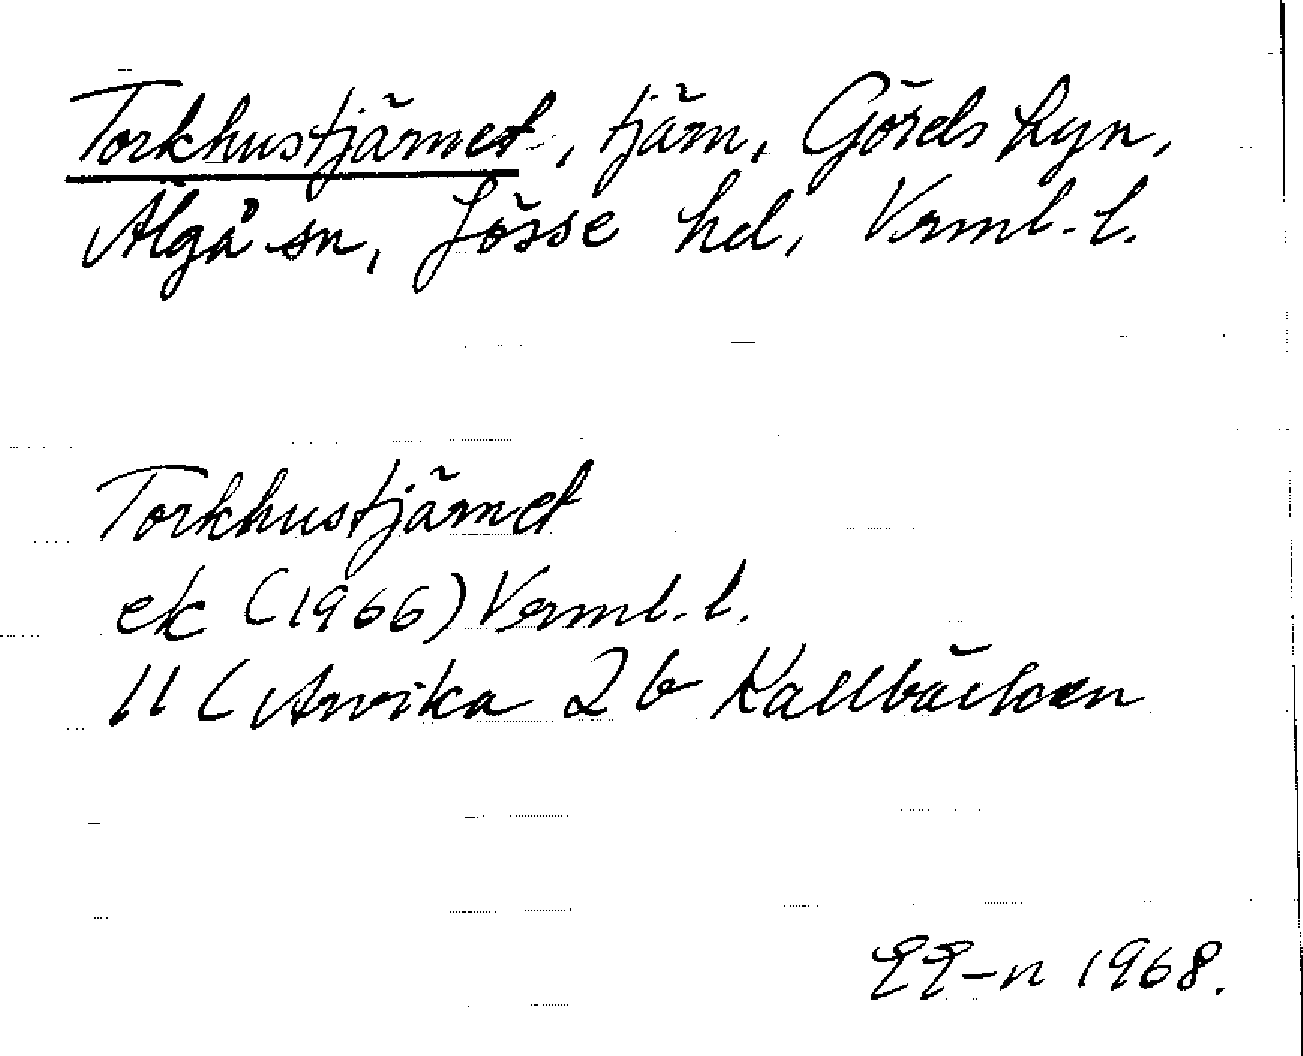 Torkhustjärnet, tjärn, Görels hyn,
Älgå sn, Jösse hd, Verml. l.
Torkhustjärnet
ek (1966) Verml. l.
11 C Arvika 2 b Kallbäcken
1968.